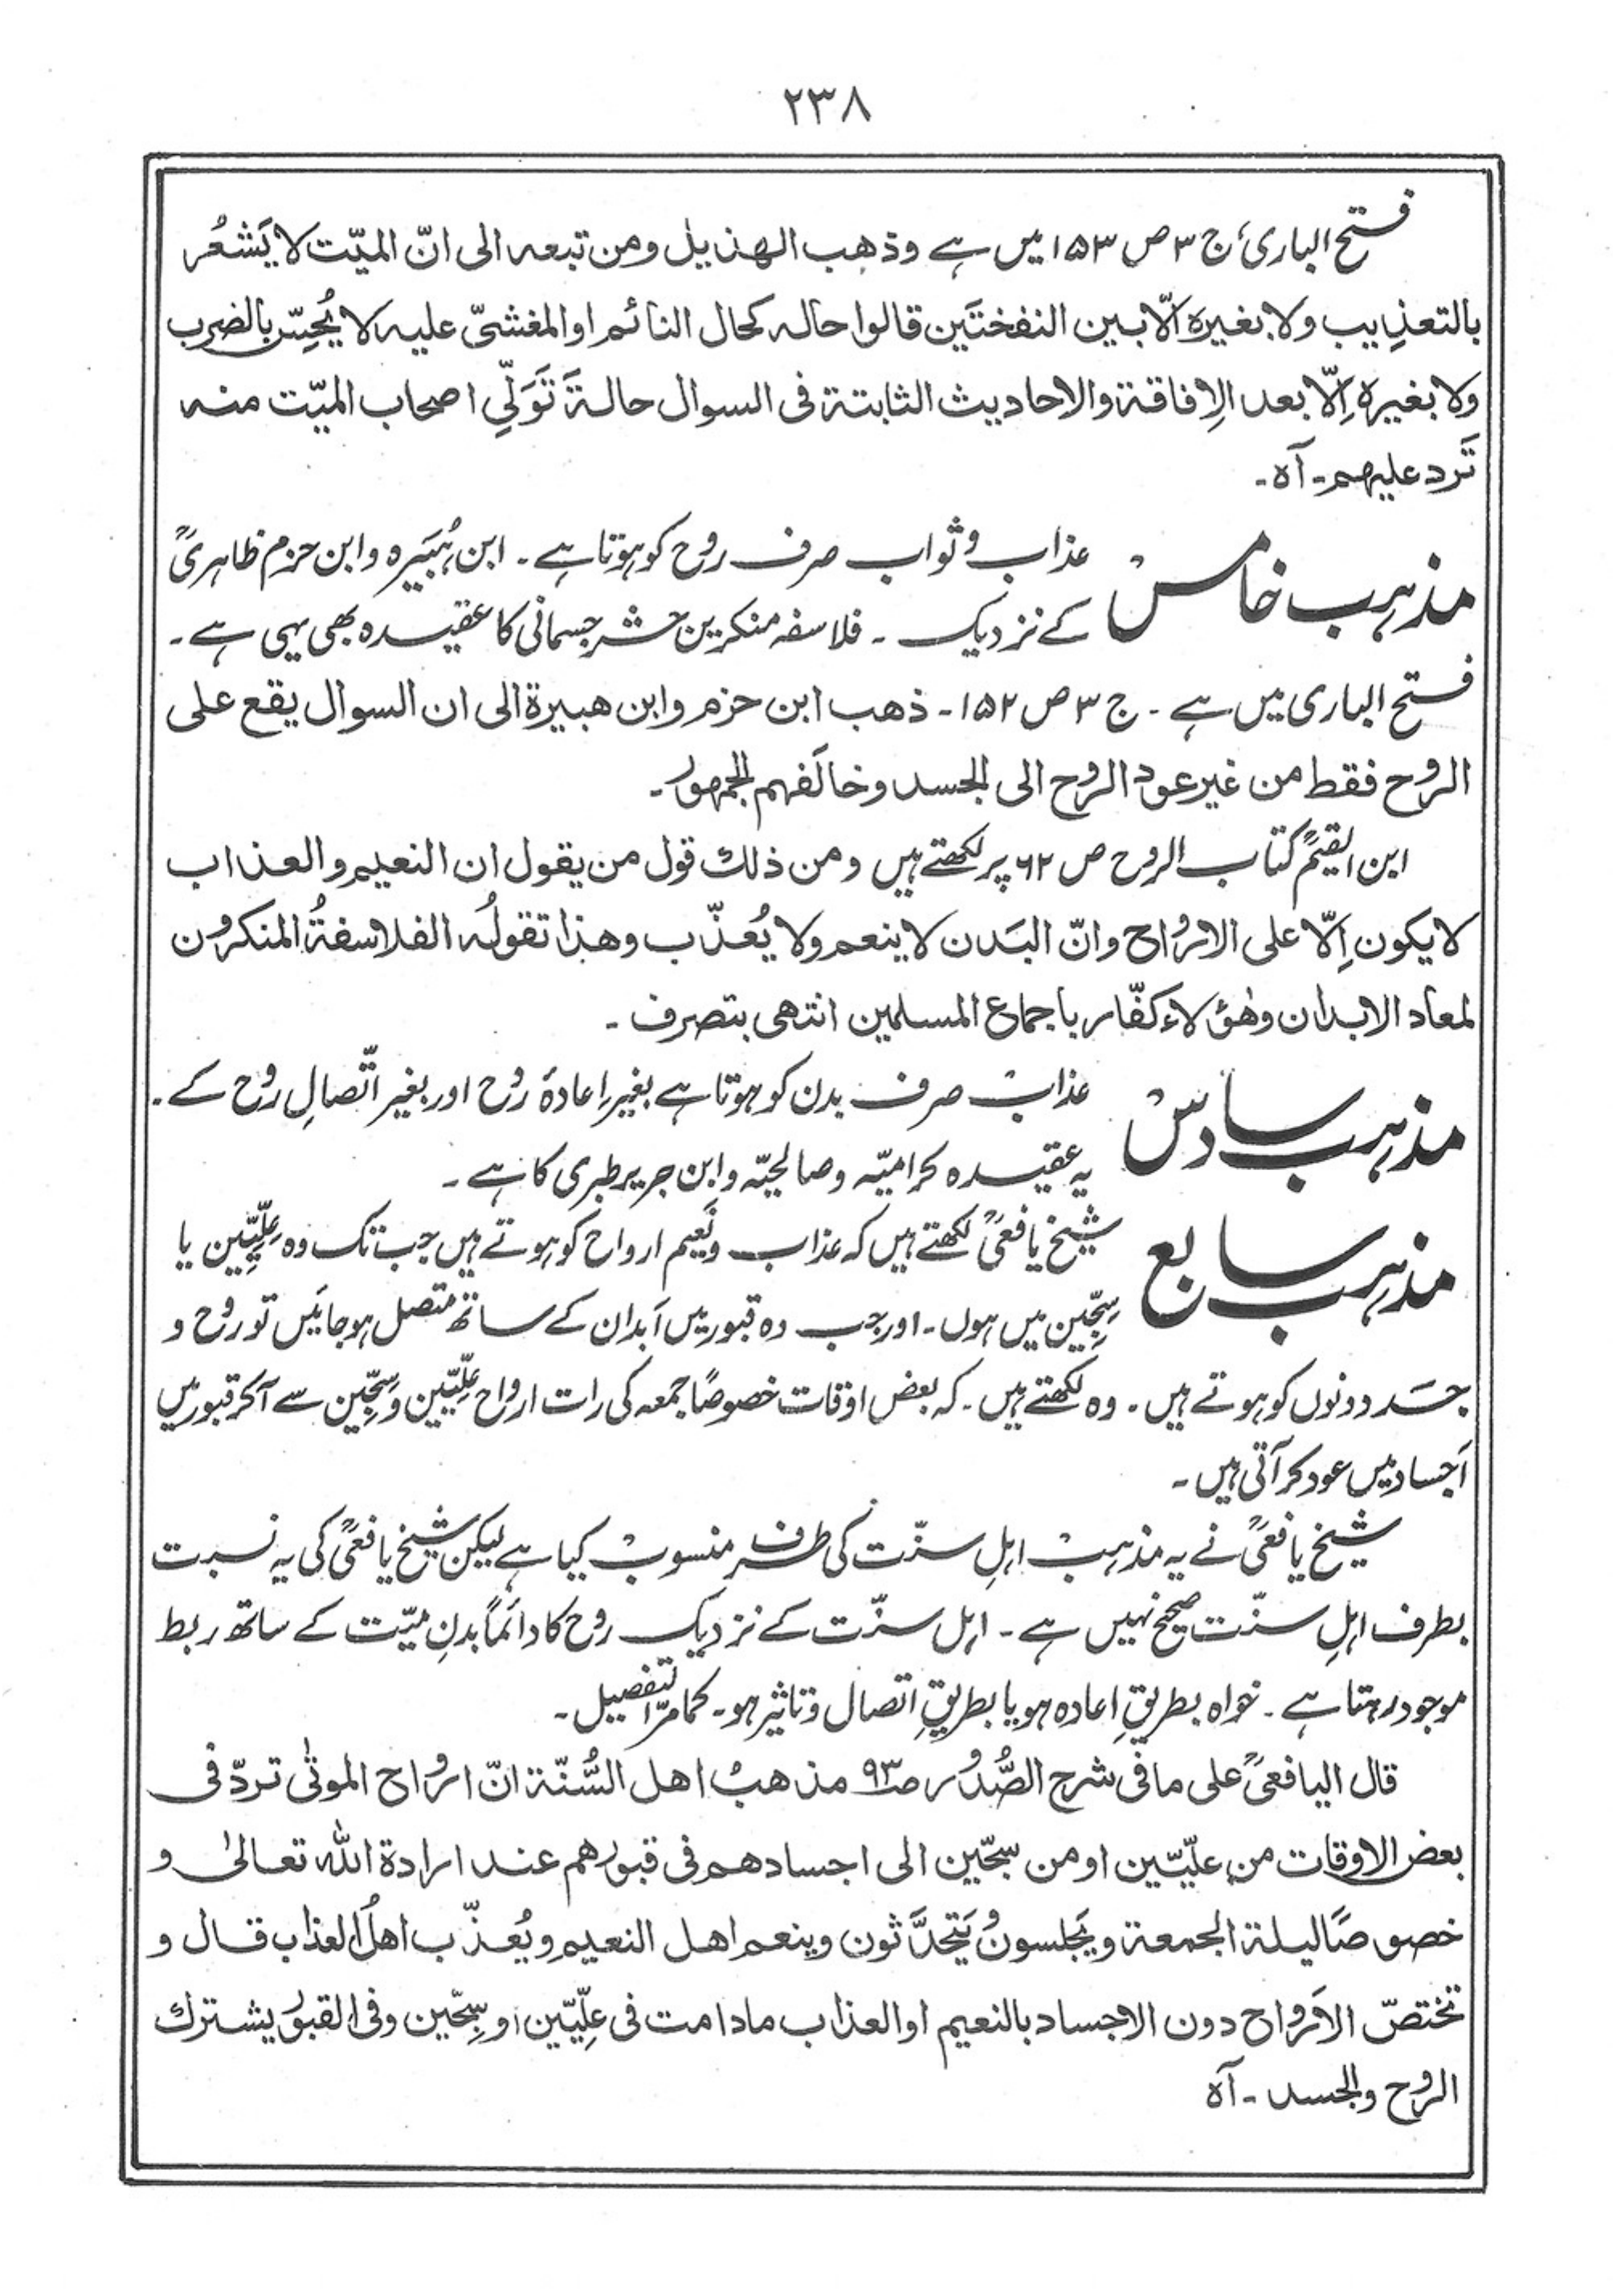 ۲۳۸
فتح الباری، ج ۳ ص ۱۵۳ میں ہے وذهب الهذيل ومن تبعه الى انّ الميّت لا يَشعُر
بالتعذيب ولا بغيره الّا بين النفختَين قالوا حاله كحال النائم او المغشيّ عليه لا يُحِسّ بالضرب
ولا بغيره اِلّا بعد الِافاقة والاحاديث الثابتة فى السوال حالةَ تَوَلّي اصحاب الميّت منه
تَرد عليهم ۔ آه ۔
مذہب خامس عذاب و ثواب صرف روح کو ہوتا ہے ۔ ابن ہُبَیرہ و ابن حزم ظاہریؒ
کے نزدیک ۔ فلاسفہ منکرین حشر جسمانی کا عقیدہ بھی یہی ہے ۔
فتح الباری میں ہے ۔ ج ۳ ص ۱۵۲ ۔ ذهب ابن حزم وابن هبيرة الى ان السوال يقع على
الروح فقط من غير عود الروح الى الجسد وخالَفهم الجمهور ۔
ابن القیمؒ کتاب الروح ص ۶۲ پر لکھتے ہیں ومن ذلك قول من يقول ان النعيم والعذاب
لا يكون اِلّا على الارواح وانّ البَدن لا ينعم ولا يُعذّب وهذا تقولُه الفلاسفةُ المنكرون
لمعاد الابدان وهٰؤلاء كفّار باجماع المسلمين انتهى بتصرف ۔
مذہب سادس عذاب صرف بدن کو ہوتا ہے بغیرِ اعادۂ روح اور بغیر اتّصالِ روح کے ۔
یہ عقیدہ کرامیّہ و صالحیّہ و ابن جریر طبری کا ہے ۔
مذہب سابع شیخ یافعیؒ لکھتے ہیں کہ عذاب و نَعیم ارواح کو ہوتے ہیں جب تک وہ عِلّیّین یا
سِجّین میں ہوں ۔ اور جب وہ قبور میں اَبدان کے ساتھ متصل ہو جائیں تو روح و
جسَد دونوں کو ہوتے ہیں ۔ وہ لکھتے ہیں ۔ کہ بعض اوقات خصوصًا جمعہ کی رات ارواح عِلّیّین و سِجّین سے آکر قبور میں
اَجساد میں عود کر آتی ہیں ۔
شیخ یافعیؒ نے یہ مذہب اہلِ سنّت کی طرف منسوب کیا ہے لیکن شیخ یافعیؒ کی یہ نسبت
بطرف اہلِ سنّت صحیح نہیں ہے ۔ اہل سنّت کے نزدیک روح کا دائماً بدنِ میّت کے ساتھ ربط
موجود رہتا ہے ۔ خواہ بطریقِ اعادہ ہو یا بطریقِ اتصال و تاثیر ہو ۔ کما مرّ التفصیل ۔
قال اليافعىؒ على ما فى شرح الصُّدُور ص۹۳ مذهبُ اهل السُّنّة انّ ارواح الموتٰى تردّ فى
بعض الاوقات من علّيّين او من سجّين الى اجسادهم فى قبورهم عند ارادة الله تعالىٰ و
خصوصًا ليلة الجمعة ويَجلسون يَتَحدَّثون وينعم اهل النعيم ويُعذّب اهلُ العذاب قال و
تختصّ الاَرواح دون الاجساد بالنعيم او العذاب ما دامت فى عِلّيّين او سِجّين وفى القبور يشترك
الروح والجسد ۔ آه